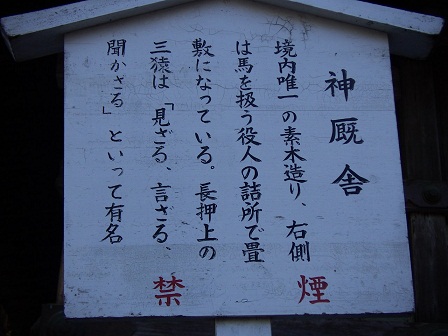 神厩舎
境内唯一の素木造り、右側
は馬を扱う役人の詰所で畳
敷になっている。長押上の
三猿は「見ざる、言さる、
聞かさる」といって有名
禁煙